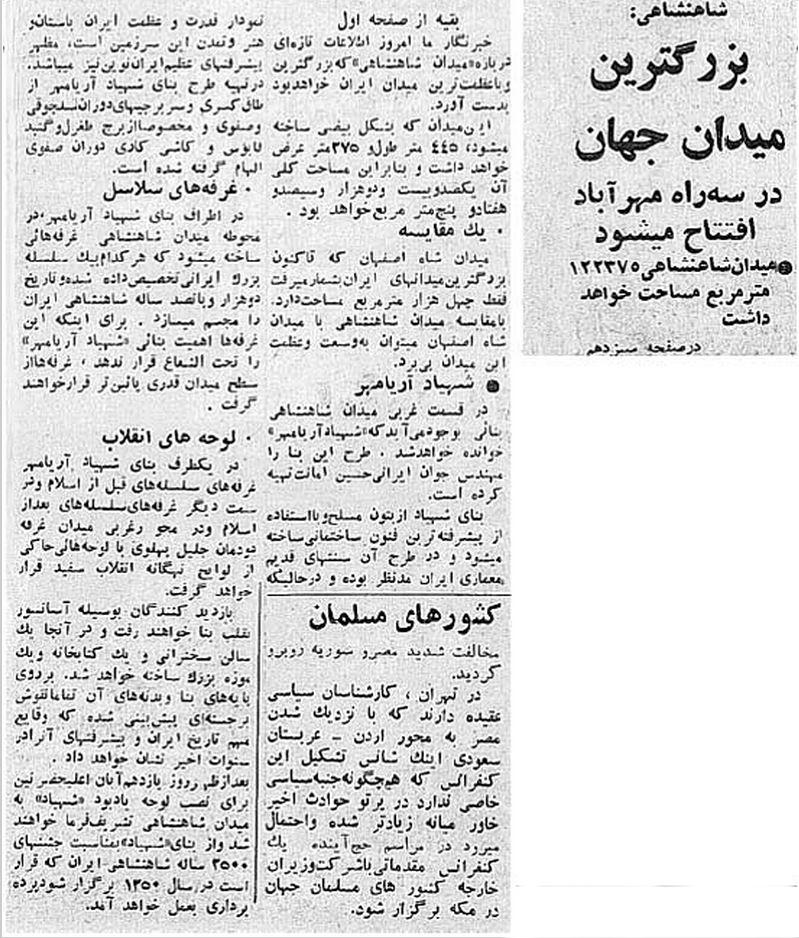 شاهنشاهی:
بزرگترین
میدان جهان
در سه‌راه مهرآباد
افتتاح میشود
میدان شاهنشاهی ۱۲۲۳۷۵
مترمربع مساحت خواهد
داشت
درصفحه سیزدهم
بقیه از صفحه اول
خبرنگار ما امروز اطلاعات تازه‌ای
درباره «میدان شاهنشاهی» که بزرگترین
وباعظمت‌ترین میدان ایران خواهدبود
بدست آورد.
این میدان که بشکل بیضی ساخته
میشود، ۴۴۵ متر طول و ۲۷۵ متر عرض
خواهد داشت و بنابراین مساحت کلی
آن یکصدوبیست ودوهزار وسیصدو
هفتادو پنج‌متر مربع خواهد بود .
• یک مقایسه
میدان شاه اصفهان که تاکنون
بزرگترین میدانهای ایران بشمار میرفت
فقط چهل هزار مترمربع مساحت دارد.
بامقایسه میدان شاهنشاهی با میدان
شاه اصفهان میتوان به‌وسعت وعظمت
این میدان پی‌برد.
● شهیاد آریامهر
در قسمت غربی میدان شاهنشاهی
بنائی بوجود می‌آید که «شهیاد آریامهر»
خوانده خواهدشد . طرح این بنا را
مهندس جوان ایرانی حسین امانت تهیه
کرده است.
بنای شهیاد ازبتون مسلح وبااستفاده
از پیشرفته‌ترین فنون ساختمانی ساخته
میشود و در طرح آن سنتهای قدیم
معماری ایران مدنظر بوده و درحالیکه
نمودار قدرت و عظمت ایران باستان و
هنر وتمدن این سرزمین است، مظهر
پیشرفتهای عظیم ایران نوین نیز میباشد.
درتهیه طرح بنای شهیاد آریامهر از
طاق کسری و سر برجهای دوران سلجوقی
وصفوی و مخصوصا ازبرج طغرل و گنبد
قابوس و کاشی کاری دوران صفوی
الهام گرفته شده است.
• غرفه‌های سلاسل
در اطراف بنای شهیاد آریامهر، در
محوطه میدان شاهنشاهی غرفه‌هائی
ساخته میشود که هرکدام بیک سلسله
بزرگ ایرانی تخصیص داده شده و تاریخ
دوهزار و پانصد ساله شاهنشاهی ایران
را مجسم میسازد . برای اینکه این
غرفه‌ها اهمیت بنائی «شهیاد آریامهر»
را تحت الشعاع قرار ندهد ، غرفه‌ها از
سطح میدان قدری پائین‌تر قرار خواهند
گرفت .
• لوحه های انقلاب
در یکطرف بنای شهیاد آریامهر
غرفه‌های سلسله‌های قبل از اسلام ودر
سمت دیگر غرفه‌های سلسله‌های بعداز
اسلام ودر محور غربی میدان غرفه
دودمان جلیل پهلوی با لوحه‌هائی حاکی
از لوایح نهگانه انقلاب سفید قرار
خواهد گرفت.
بازدید کنندگان بوسیله آسانسور
بقلب بنا خواهند رفت و در آنجا یک
سالن سخنرانی و یک کتابخانه ویک
موزه بزرگ ساخته خواهد شد. برروی
پایه‌های بنا وبدنه‌های آن تماما نقوش
برجسته‌ای پیش‌بینی شده که وقایع
مهم تاریخ ایران و پیشرفتهای آنرا در
سنوات اخیر نشان خواهد داد .
بعدازظهر روز یازدهم آبان اعلیحضرتین
برای نصب لوحه یادبود «شهیاد» به
میدان شاهنشاهی تشریف‌فرما خواهند
شد واز بنای «شهیاد» بمناسبت جشنهای
۲۵۰۰ ساله شاهنشاهی ایران که قرار
است در سال ۱۳۵۰ برگزار شود پرده
برداری بعمل خواهد آمد.
کشورهای مسلمان
مخالفت شدید مصر و سوریه روبرو
گردید.
در تهران ، کارشناسان سیاسی
عقیده دارند که با نزدیک شدن
مصر به محور اردن - عربستان
سعودی اینک شانس تشکیل این
کنفرانس که هیچگونه جنبه سیاسی
خاصی ندارد در پرتو حوادث اخیر
خاور میانه زیادتر شده واحتمال
میرود در مراسم حج آینده یک
کنفرانس مقدماتی باشرکت وزیران
خارجه کشور های مسلمان جهان
در مکه برگزار شود.